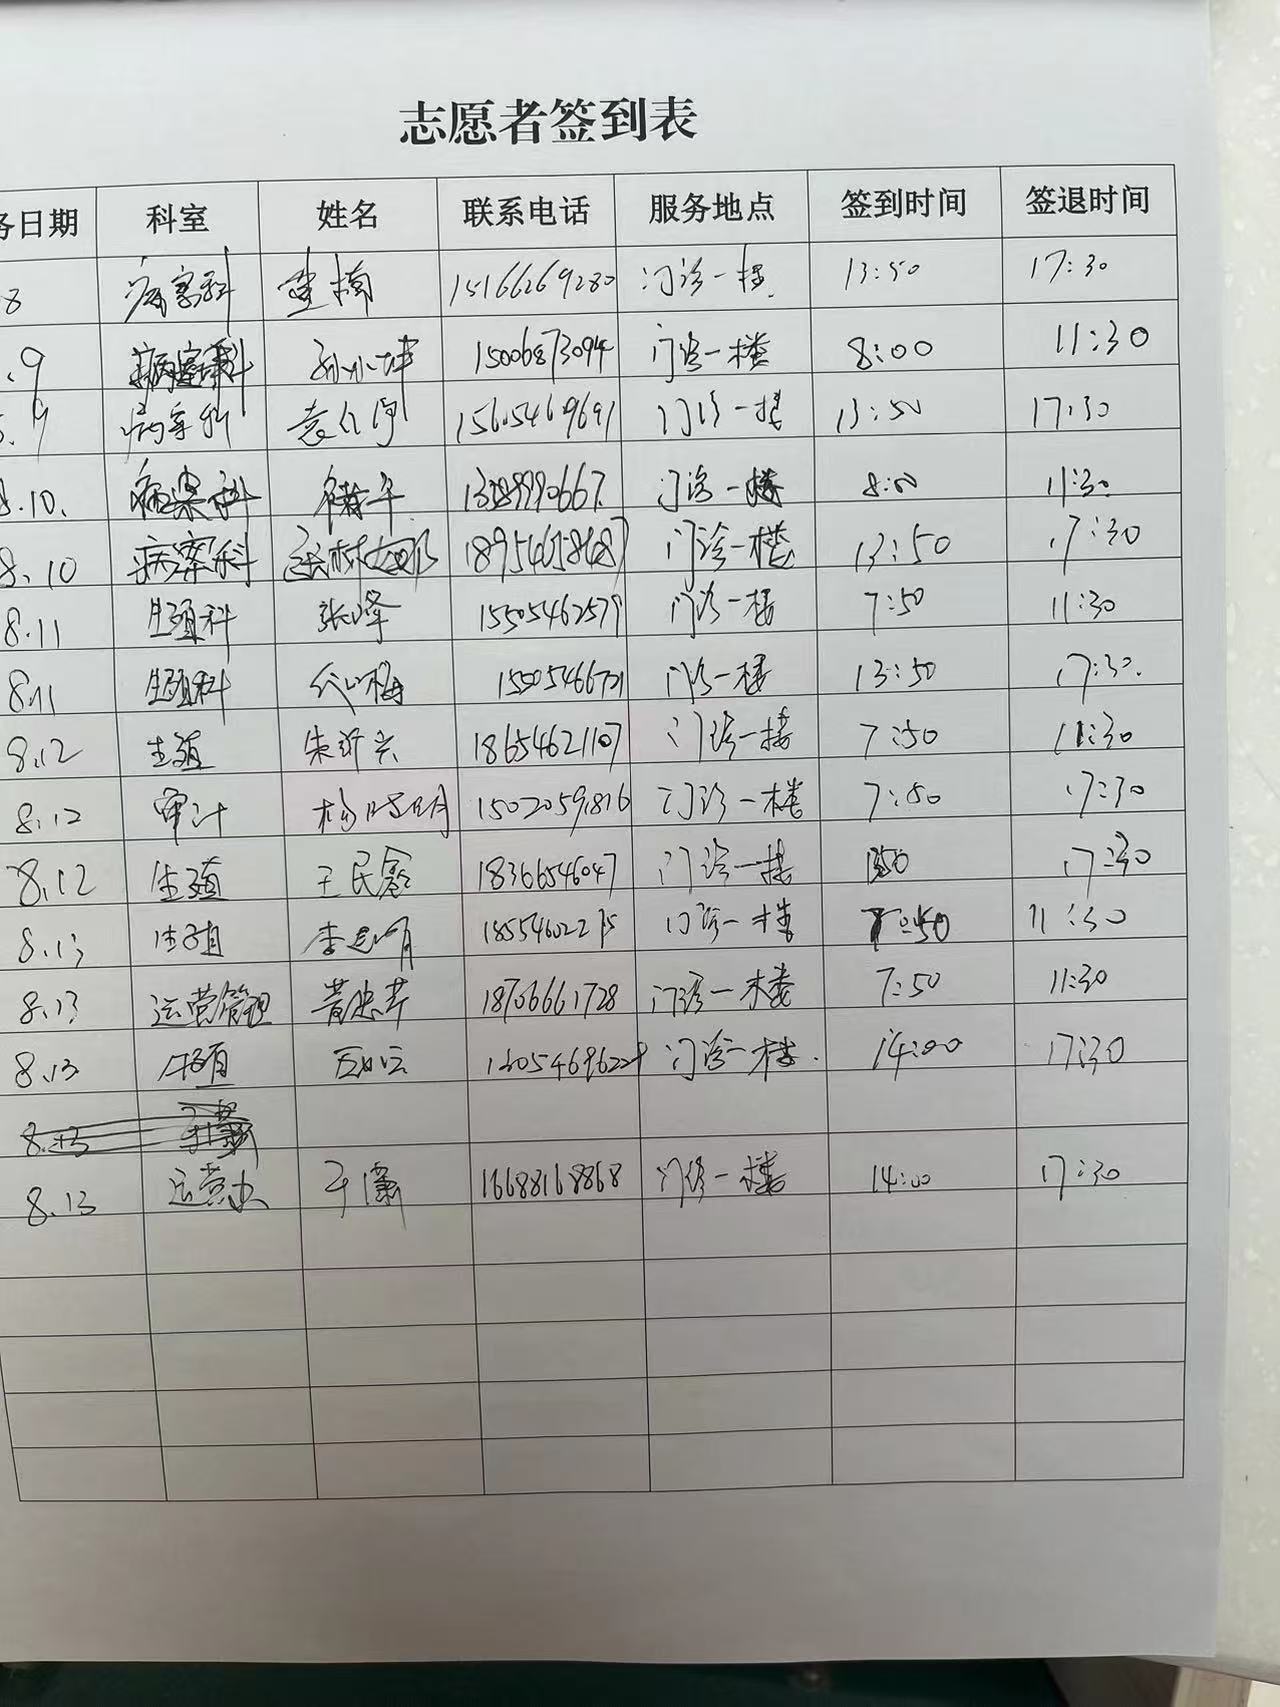 志愿者签到表
务日期 科室 姓名 联系电话 服务地点 签到时间 签退时间
8 病案科 楠 15166269280 门诊一楼 13:50 17:30
.9 病案科 孙小坤 15006873094 门诊一楼 8:00 11:30
8.9 病案科 15605469691 门诊一楼 13:50 17:30
8.10. 病案科 门诊一楼 8:00 11:30
8.10 病案科 门诊一楼 13:50 17:30
8.11 生殖科 张峰 15505462579 门诊一楼 7:50 11:30
8.11 生殖科 代心梅 15505466701 门诊一楼 13:50 17:30.
8.12 生殖 朱沂兴 18654621107 门诊一楼 7:50 11:30
8.12 审计 杨晓明 15020591816 门诊一楼 7:50 17:30
8.12 生殖 王民鑫 18366546047 门诊一楼 17:30
8.13 生殖 李 门诊一楼 7:50 11:30
8.13 运营管理 黄忠芹 18706661728 门诊一楼 7:50 11:30
8.13 生殖 门诊一楼. 14:00 17:30
8.13
8.13 运营办 于潇 16688168868 门诊一楼 14:00 17:30